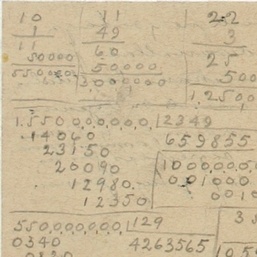 10
1
11
50000
550,000
11
49
60
50000
3000000
22
3
25
500
1,2500
1.5500,000,000, 12349
14060
23150
20090
12980.
12350
659855
1000,000,0
001000
0010
550,000,000, 129
0340
4263565
3